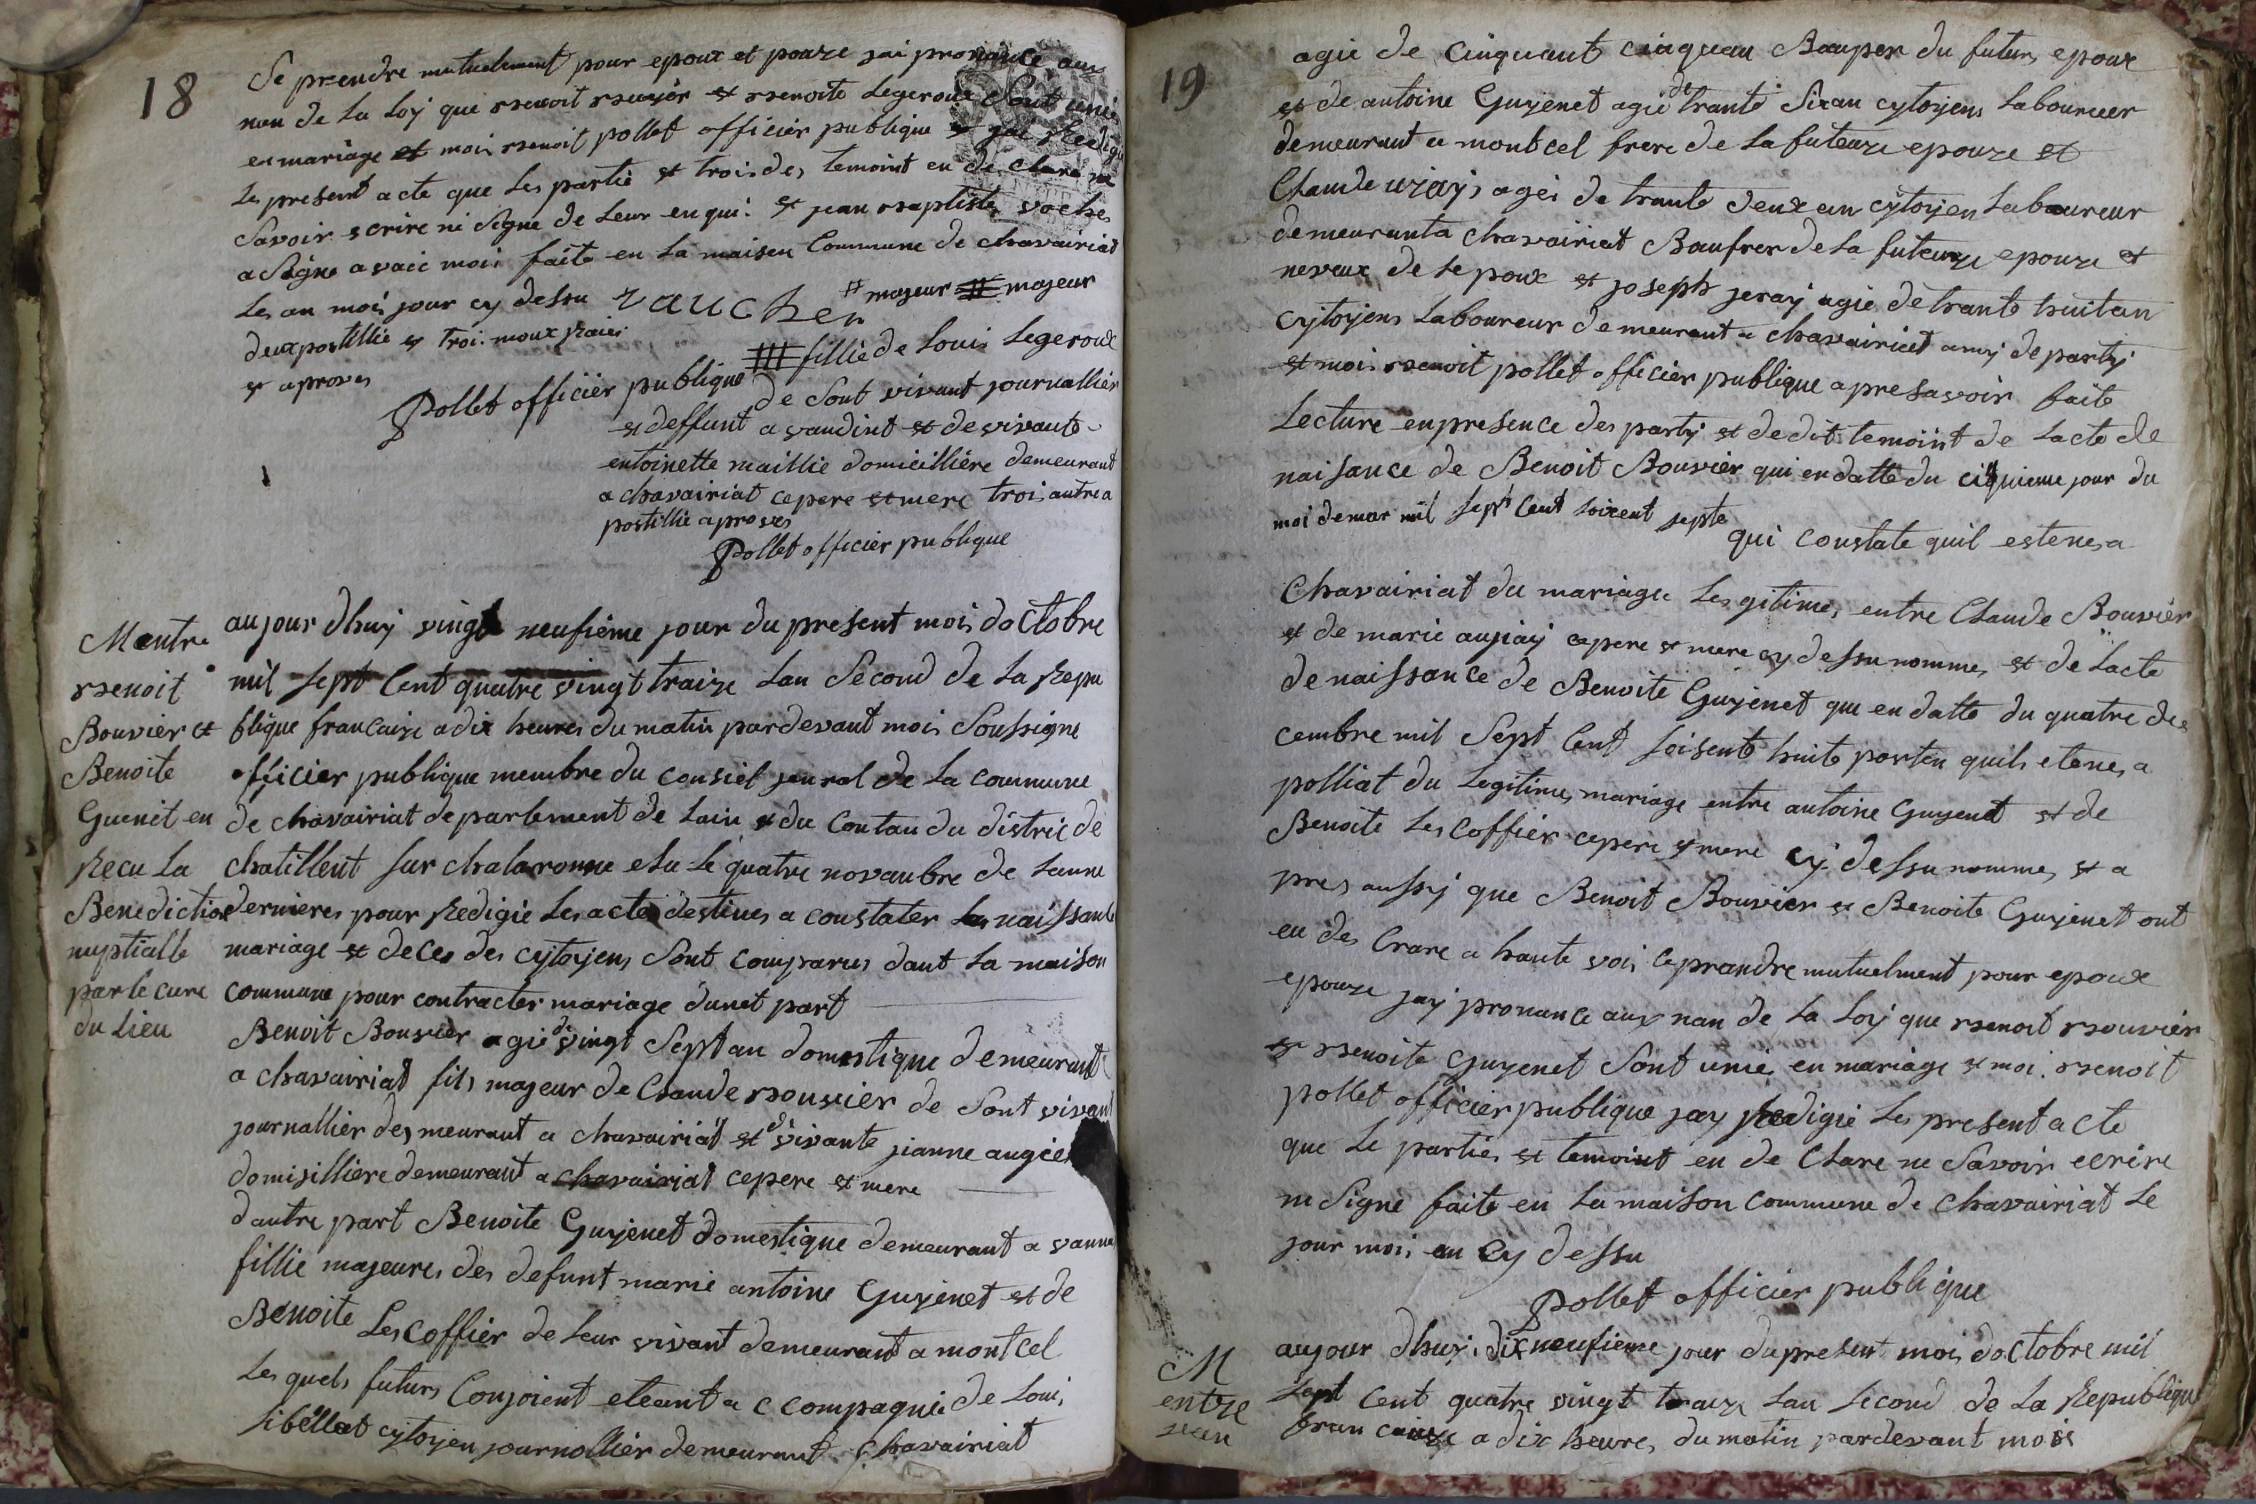 18
Se prendre mutuelment pour epoux et pouze jai prononcé aux
nan de La Loy que et Legeroux Sont unie
en mariage et moi rsenoit pollet officier publique et jai Redigé
Les present acte que Les partie et trois des temoint en de clare ne
Savoir scrire ni Signe de Leur enqui. et jean rsaptiste vocher
a Signe avaic moi faite en La maison Commune de chavairiat
Les an moi jour cy dessu vaucher # majeur # majeur
deux postillie et troi moux Raies
et aproves
Pollet officiér publique
fillie de Loui Legeroux
de Sont vivant journalliér
et deffunt a vandint et de vivante
entoinette maillie domicilliére demeurant
a chavairiat ce pere et mere trois autre a
postillie aproves
Pollet officier publique
M entre
rsenoit
Bouviér et
Benoite
Guenet en
Recu La
Benediction
nuptialle
par le cure
du Lieu
aujour dhuy vingt neufiéme jour du present moi doctobre
mil sept Cent quatre vingt traize Lan Second de La Repu
blique francaize a dix heures du matin pardevant moi Soussigne
officier publique membre du consiel jenral de La commune
de chavairiat departement de Lain et du Contau du distric de
chatillent sur chalaronne elu Le quatre novanbre de Lanne
dernieres pour Redigie Les acte destines a constater Les naissance
mariage et deces des cytoyens Sont comparus dant La maison
commune pour contracter mariage dunet part
Benoit Bouvier agie de vingt Sept an domestique demeurant
a chavairiat fils majeur de Claude rsouviér de Sont vivant
journalliér des meurant a chavairiat et de vivante jianne
domisilliere demeurant a chavairiat ce pere et mere
dautre part Benoite Guyenet domestique demeurant a vanna
fillie majeures des defunt marie antoine Guyenet et de
Benoite Les coffiér de Leur vivant demeurant a montcel
Les quels futurs Conjoient eteant a c compagnié de Loui
Libellat cytoyen journalliér demeurant chavairiat
19
agie de cinquant cinquean Bauper du futurs epoux
et de antoine Guyenet agie de trante Sixan cytoyens Laboureur
demeurant a montcel frere de La futeuze epouze et
Claude uzay agei de trante deux an cytoyen Laboureur
demeuranta chavairiat Baufrer de La futeuze epouze et
neveux de Le poux et joseph jeray agie de trante huitan
cytoyens Laboureur demeurant a chavairiat amy de party
et moi rsenoit pollet officiér publique apres avoir faite
Lecture en presence des party et dedit temoint de Lacte de
naisance de Benoit Bouviér qui en datte du ciquieme jour du
moi de mar mil sept Cent soixent septe qui constate quil estenes a
Chavairiat du mariage Les gitime, entre Claude Bouviér
et de marie aujiay ce pere et mere cy dessu nomme, et de Lacte
de naissance de Benoite Guyenet que en datte du quatre des
cembre mil Sept Cent soisente huite porten quils etenes a
polliat du Legitime mariage entre antoine Guyenet et de
Benoite Les coffiér ce pere et mere cy dessu nomme, et a
pres aussy que Benoit Bouviér et Benoite Guyenet ont
en des Crare a haute voi ce prandre mutuelment pour epoux
epouze jay pronance aux nan de La Loy que rsenoit rsouviér
et rsenoite Guyenet Sont unié en mariage et moi rsenoit
pollet officier publique jay Redigié Les present acte
que Le partiés et temoint en de Clare ne Savoir ecrire
ni Signe faite en La maison commune de chavairiat Le
jour moi an cy dessu
Pollet officier publique
M
entre
jean
aujour dhuy dix neufieme jour du present moi doctobre mil
sept Cent quatre vingt traize Lan Second de La Republique
francaize a dix heures du matin pardevant mois